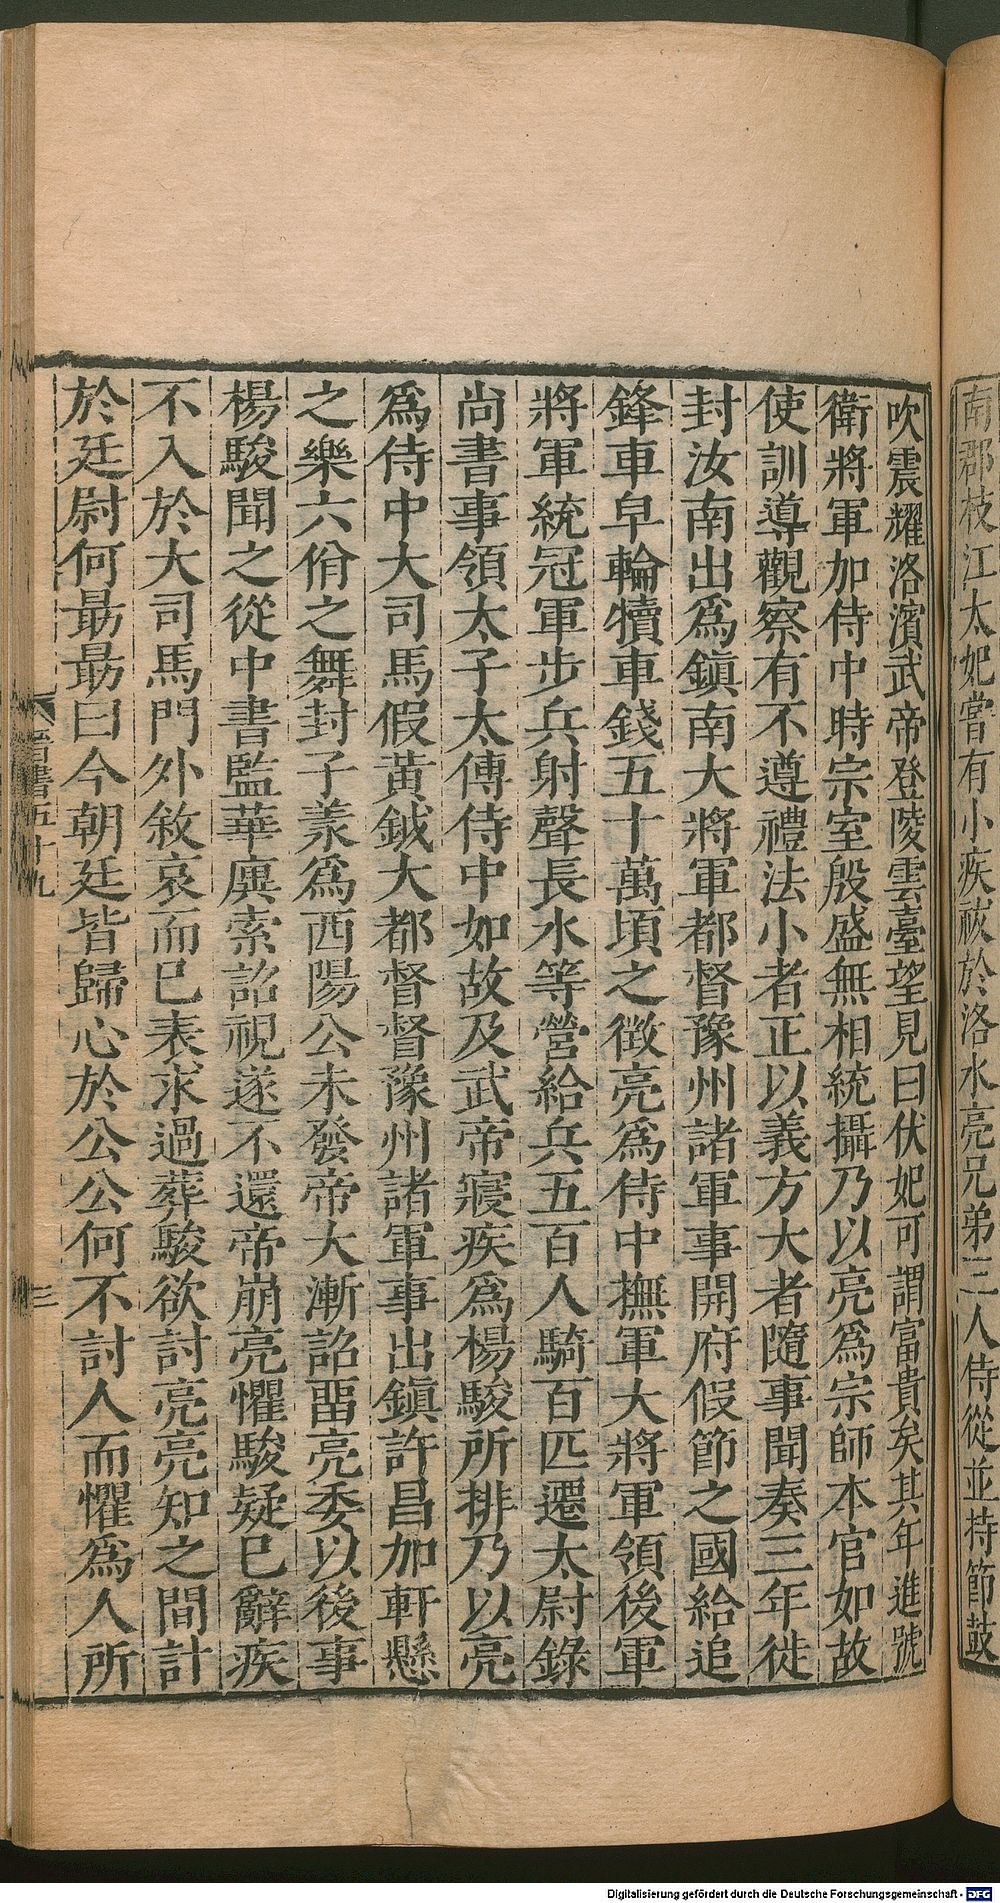 南郡枝江太妃嘗有小疾祓於洛水亮兄弟三人侍從並持節鼓
吹震耀洛濱武帝登陵雲臺望見曰伏妃可謂富貴矣其年進號
衛將軍加侍中時宗室殷盛無相統攝乃以亮為宗師本官如故
使訓導觀察有不遵禮法小者正以義方大者隨事聞奏三年徙
封汝南出為鎮南大將軍都督豫州諸軍事開府假節之國給追
鋒車皁輪犢車錢五十萬頃之徵亮為侍中撫軍大將軍領後軍
將軍統冠軍步兵射聲長水等營給兵五百人騎百匹遷太尉錄
尚書事領太子太傅侍中如故及武帝寢疾為楊駿所排乃以亮
為侍中大司馬假黃鉞大都督督豫州諸軍事出鎮許昌加軒懸
之樂六佾之舞封子羕為西陽公未發帝大漸詔畱亮委以後事
楊駿聞之從中書監華廙索詔視遂不還帝崩亮懼駿疑已辭疾
不入於大司馬門外敘哀而已表求過葬駿欲討亮亮知之間計
於廷尉何朂朂曰今朝廷皆歸心於公公何不討人而懼為人所
晉書五十九
三
Digitalisierung gefördert durch die Deutsche Forschungsgemeinschaft - DFG